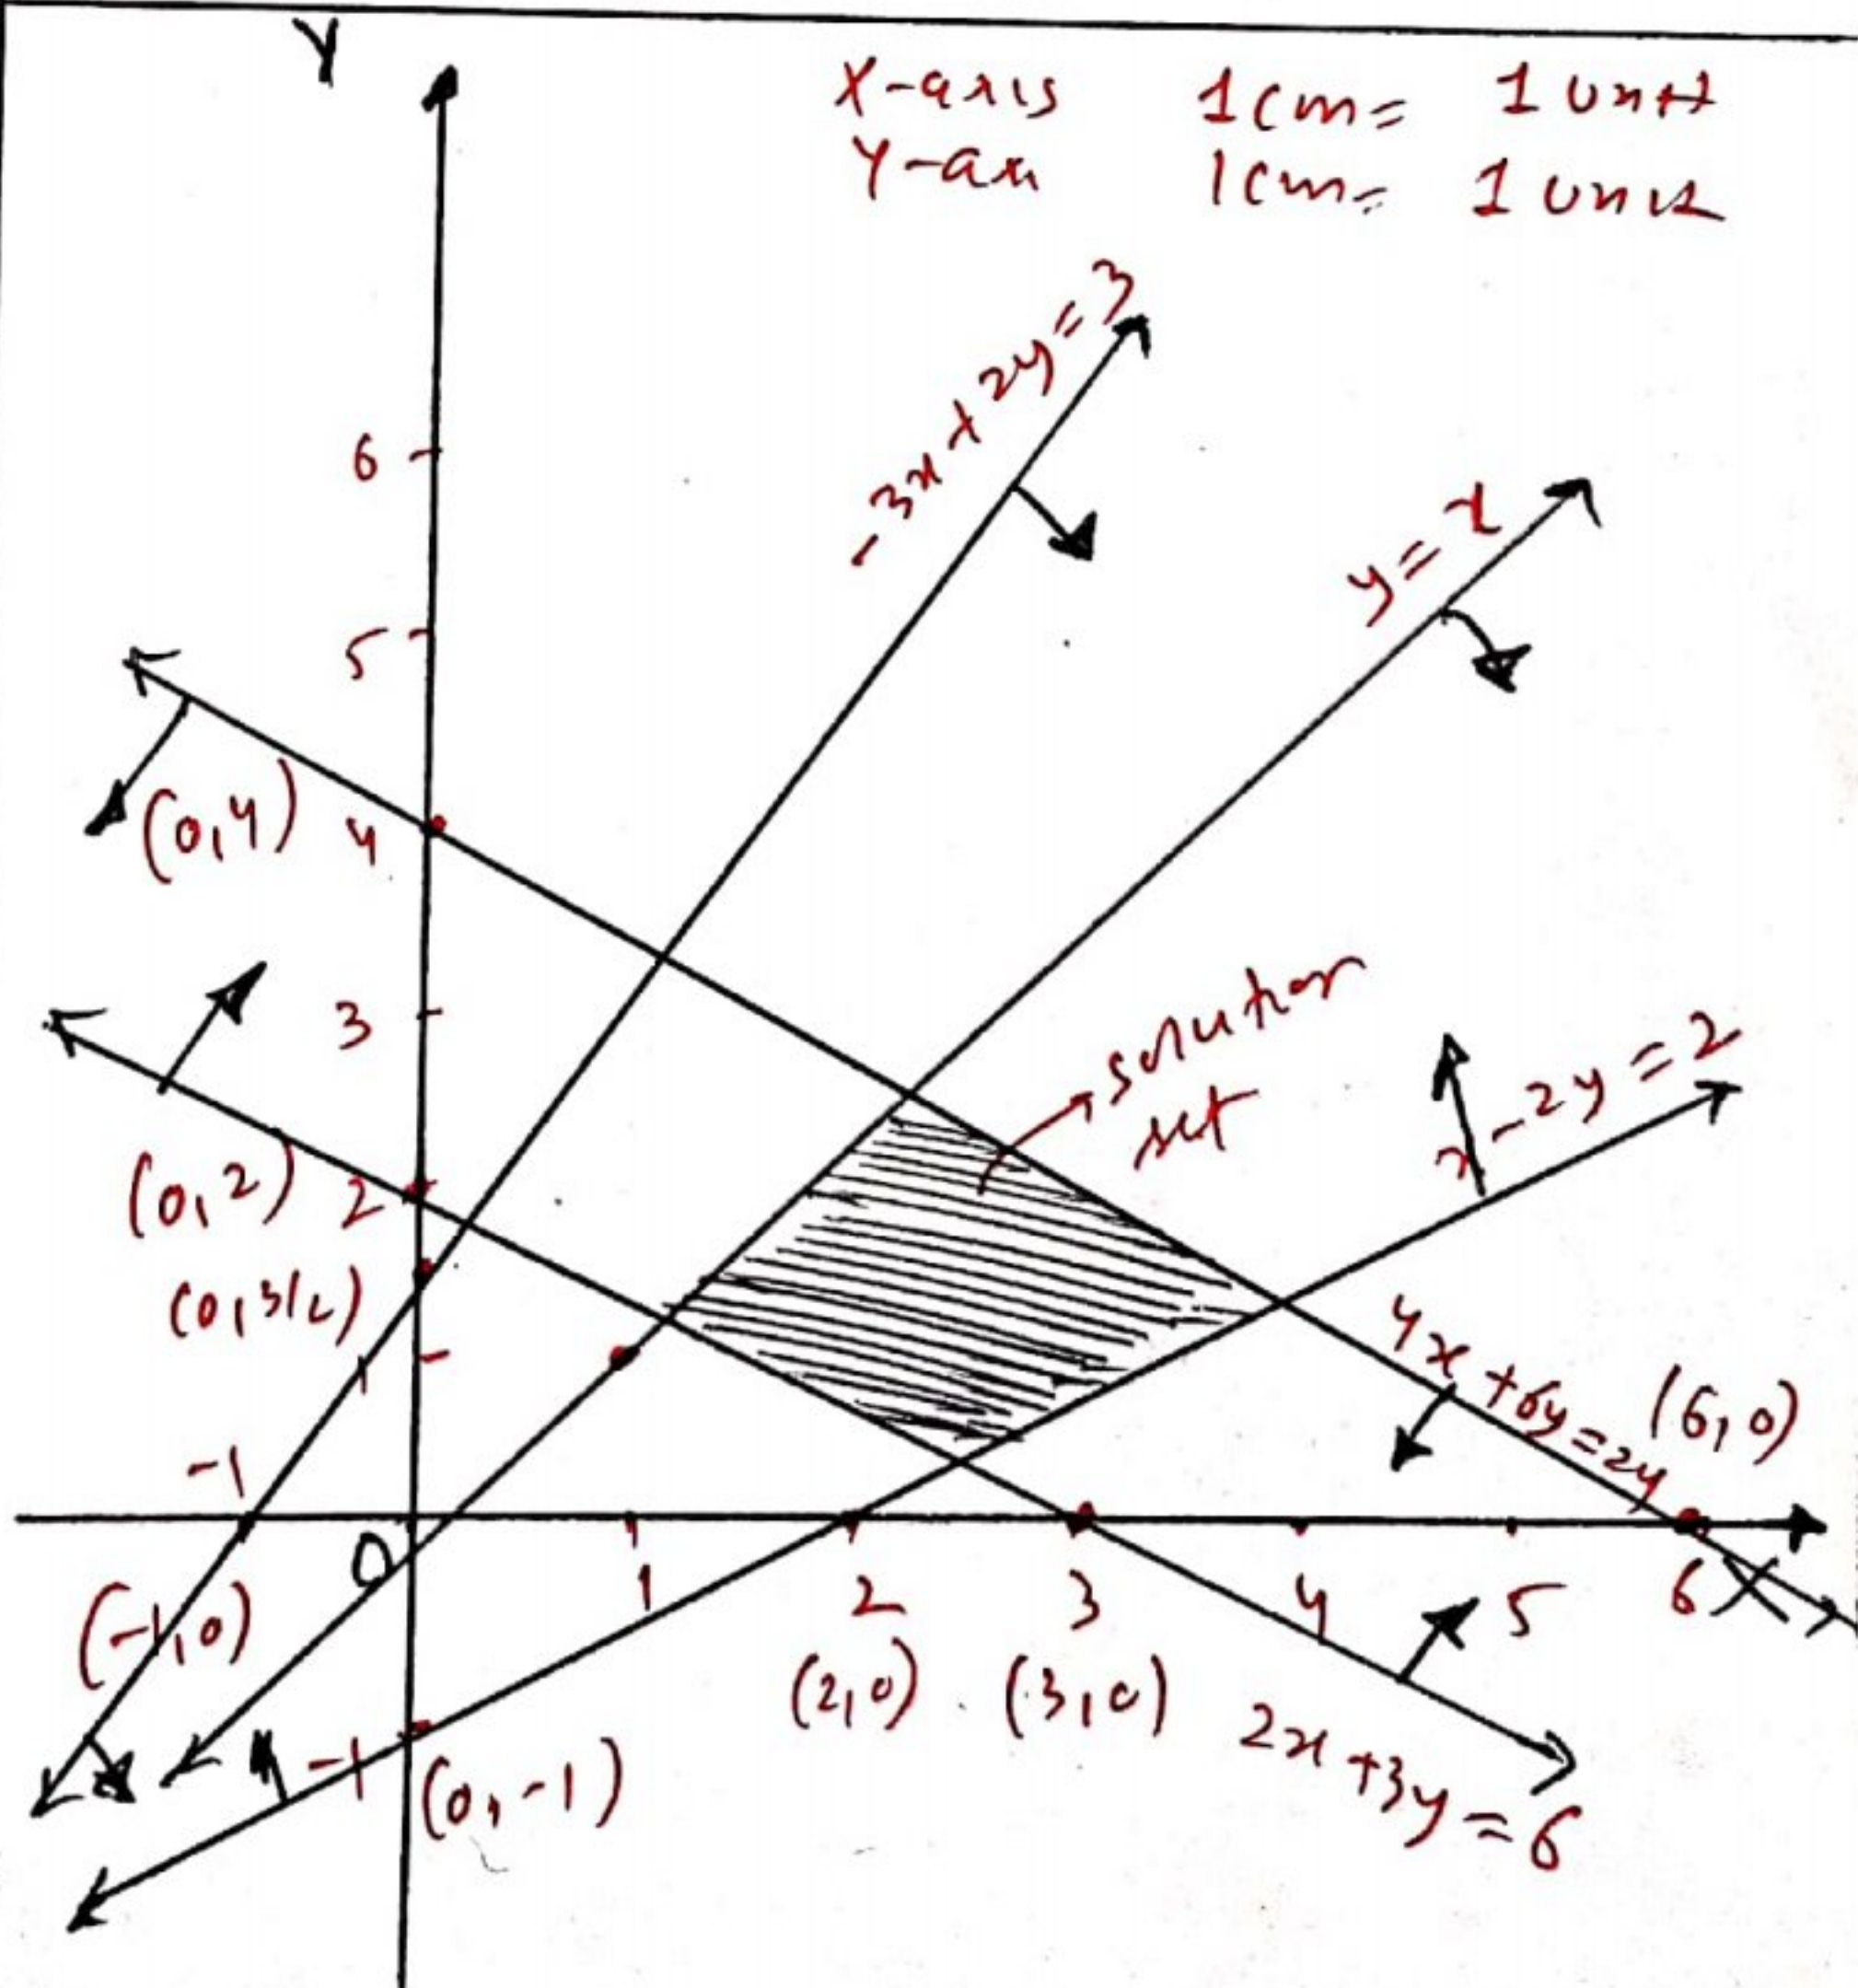 Y
X-axis 1cm= 1 Unit
Y-axi 1cm= 1 Unit
-3x+2y=3
6
y=x
5
(0,4) 4
3
solution
set
x-2y=2
(0,2) 2
(0,3/2)
1
4x+6y=24
(6,0)
-1
O
1 2 3 4 5 6 X
(-1,0)
(2,0) (3,0)
2x+3y=6
-1 (0,-1)